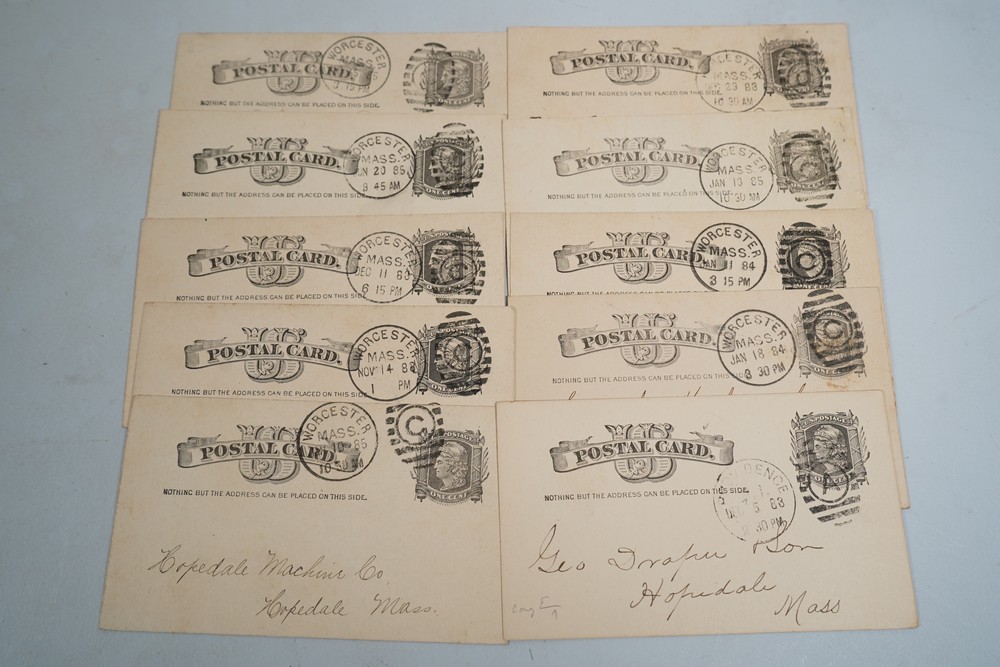 POSTAL CARD.
NOTHING BUT THE ADDRESS CAN BE PLACED ON THIS SIDE.
WORCESTER
MASS.
15 PM
ONE CENT
POSTAL CARD.
NOTHING BUT THE ADDRESS CAN BE PLACED ON THIS SIDE.
MASS.
23 83
10 30 AM
C
POSTAL CARD.
NOTHING BUT THE ADDRESS CAN BE PLACED ON THIS SIDE.
WORCESTER
MASS.
20 85
8 45 AM
ONE CENT
POSTAL CARD.
NOTHING BUT THE ADDRESS CAN BE PLACED ON THIS SIDE.
WORCESTER
MASS.
JAN 13 85
10 30 AM
POSTAL CARD.
NOTHING BUT THE ADDRESS CAN BE PLACED ON THIS SIDE.
WORCESTER
MASS.
DEC 11 83
6 15 PM
C
ONE CENT
POSTAL CARD.
NOTHING BUT THE ADDRESS CAN BE PLACED ON THIS SIDE.
WORCESTER
MASS.
JAN 11 84
3 15 PM
C
POSTAL CARD.
NOTHING BUT THE ADDRESS CAN BE PLACED ON THIS SIDE.
WORCESTER
MASS.
NOV 14 83
1 PM
C
ONE CENT
POSTAL CARD.
NOTHING BUT THE ADDRESS CAN BE PLACED ON THIS SIDE.
WORCESTER
MASS.
JAN 18 84
3 30 PM
C
POSTAL CARD.
NOTHING BUT THE ADDRESS CAN BE PLACED ON THIS SIDE.
WORCESTER
MASS.
10 85
10 30 AM
C
U.S. POSTAGE
ONE CENT
Hopedale Machine Co.
Hopedale Mass.
POSTAL CARD.
NOTHING BUT THE ADDRESS CAN BE PLACED ON THIS SIDE.
DEC 5 83
30 PM
1
U.S. POSTAGE
ONE CENT
Geo Draper Son
Hopedale
Mass